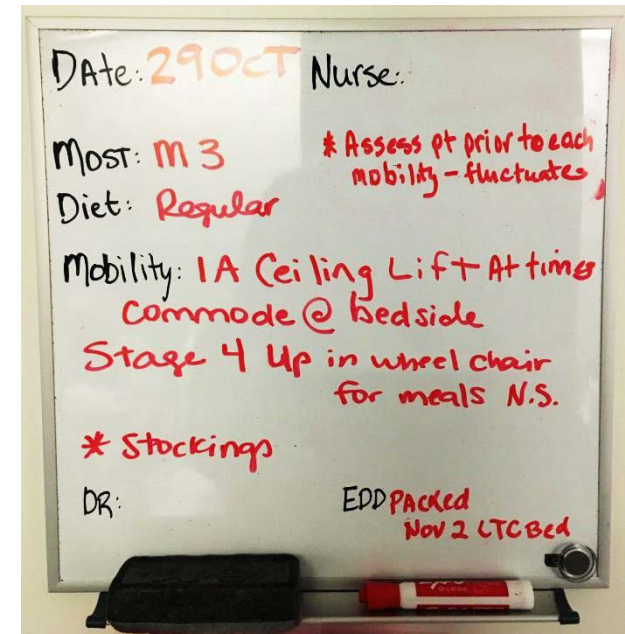 Date: 29 OCT Nurse:
MOST: M3
* Assess pt prior to each
mobility - fluctuates
Diet: Regular
Mobility: 1A Ceiling Lift At times
Commode @ bedside
Stage 4 Up in wheel chair
for meals N.S.
* Stockings
DR:
EDD PACKed
Nov 2 LTC Bed